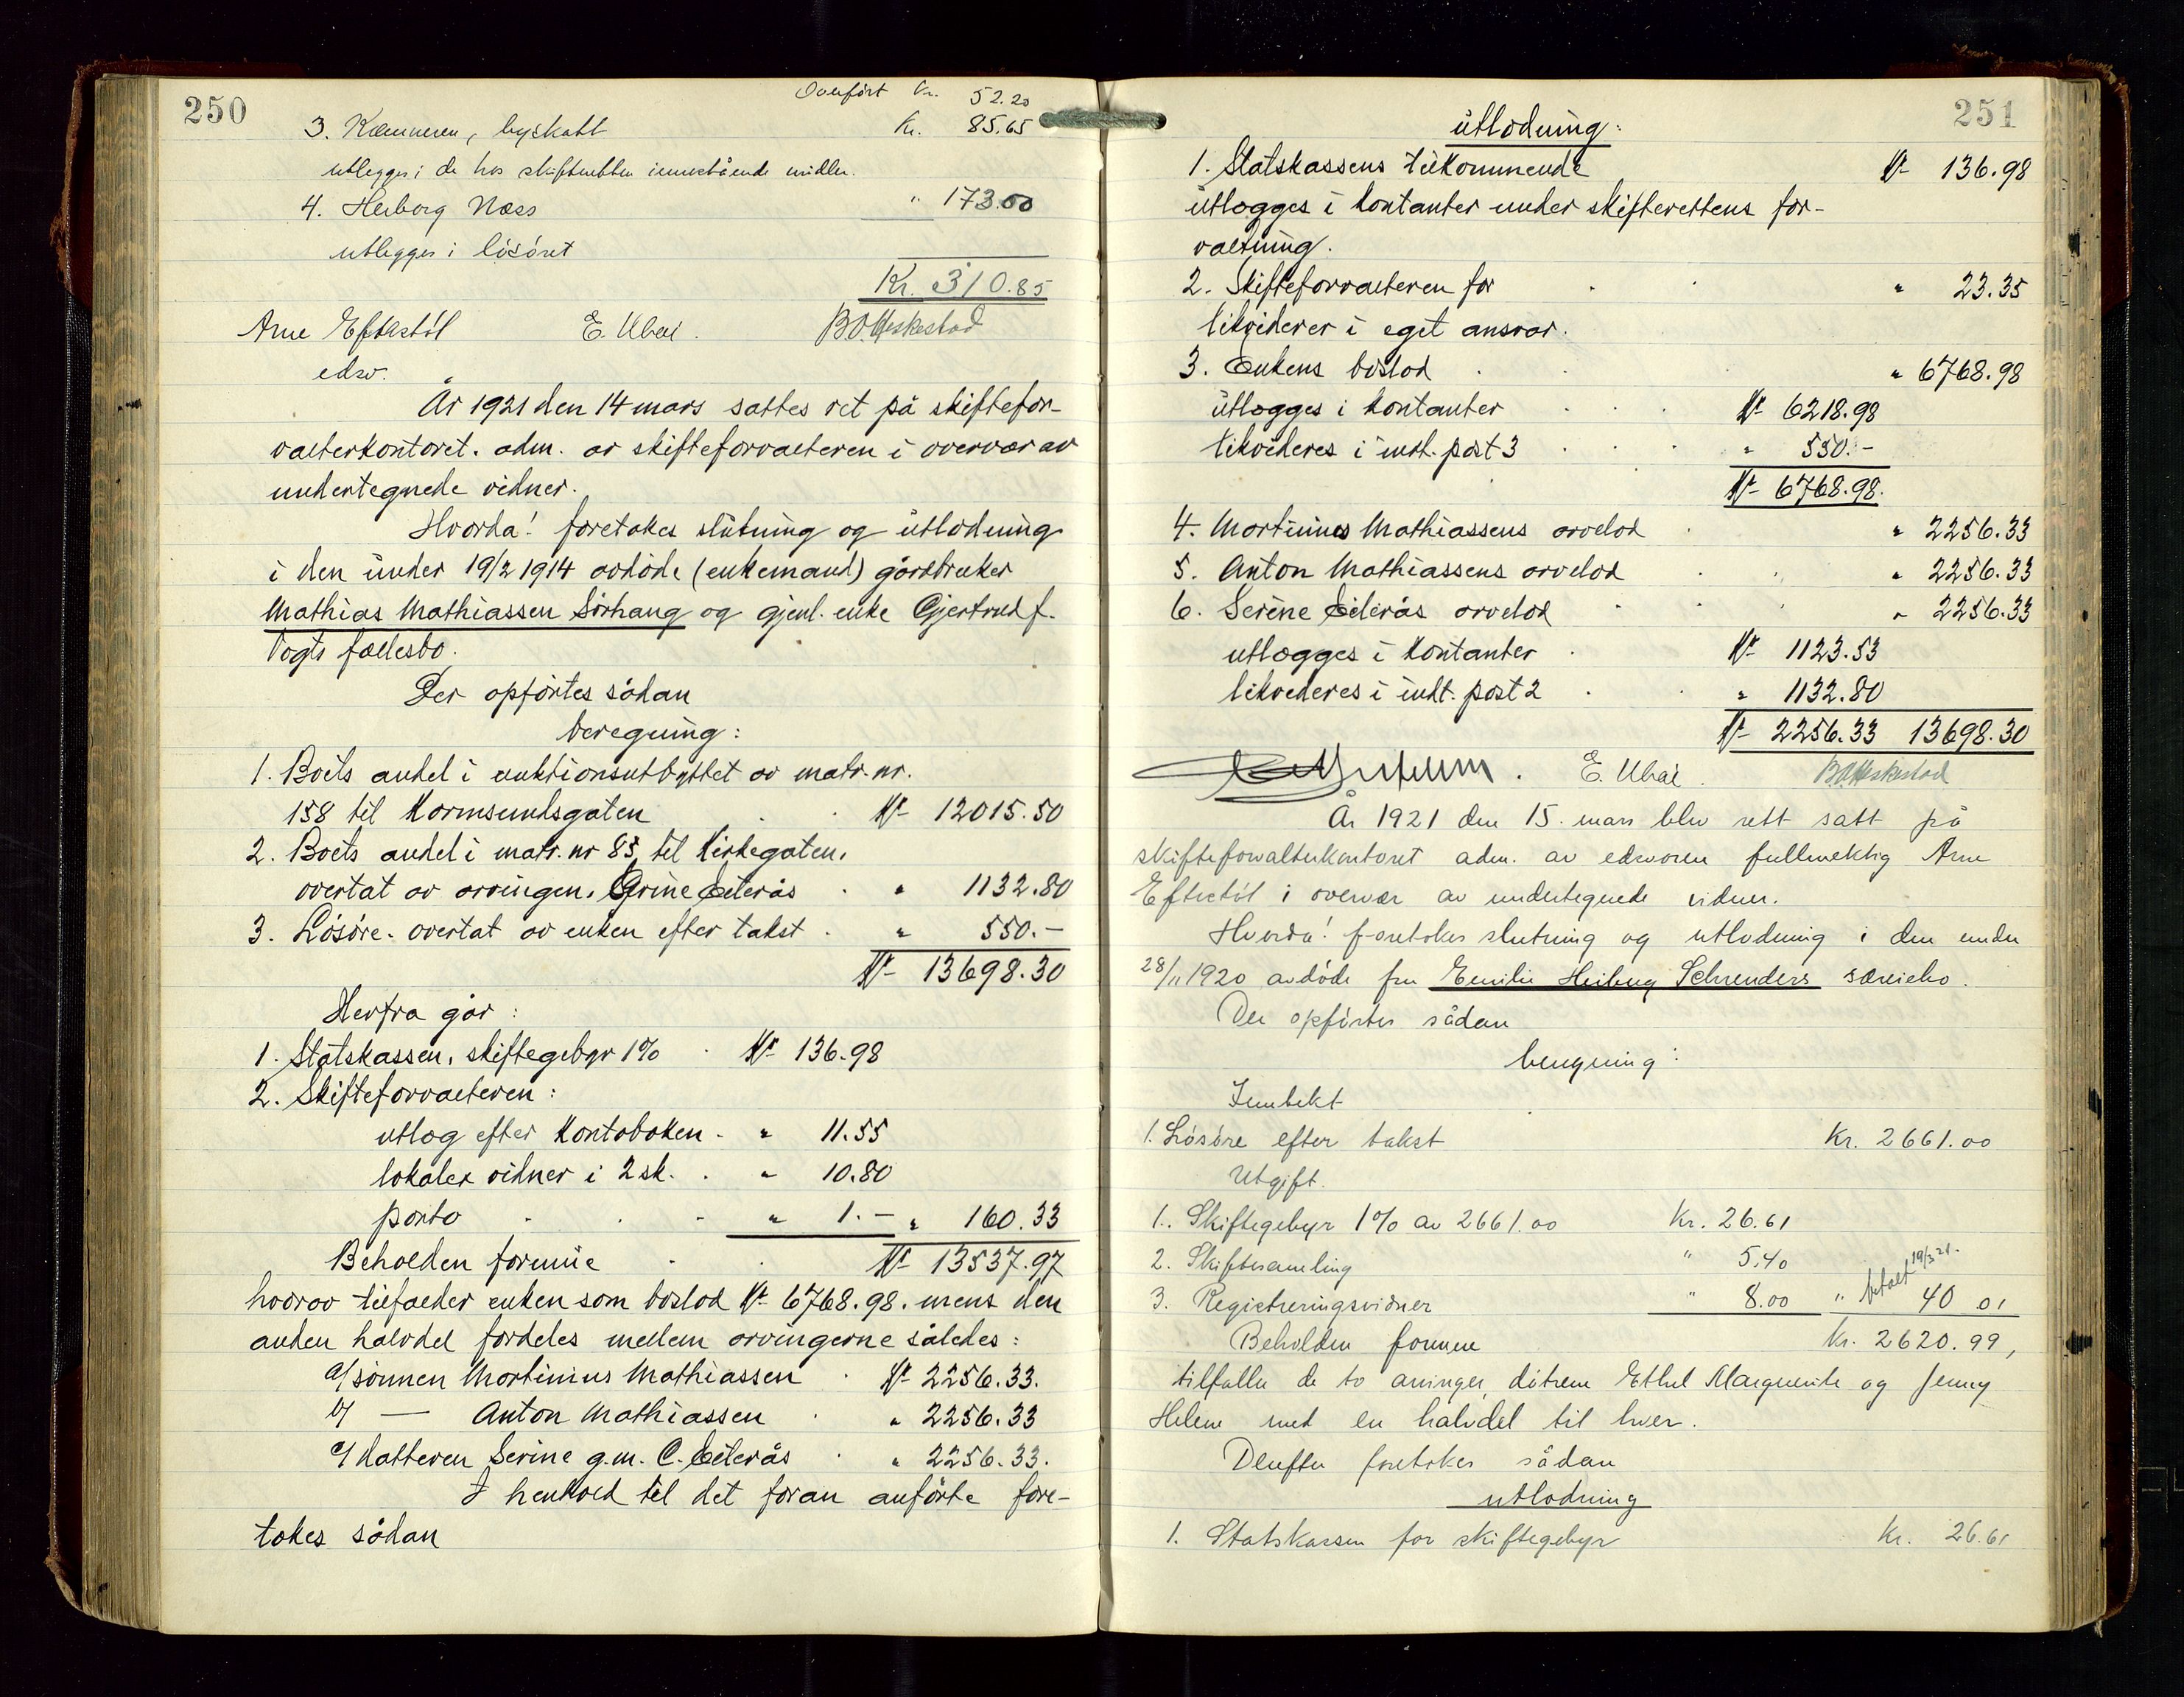 250
Overført kr. 52.20
3. Kæmneren, byskatt kr. 85.65
utlegges i de hos skifteretten innestående midler.
4. Herborg Næss " 173.00
utlegges i løsøret
Kr. 310.85
Arne Eftestøl E. Ubai. B.O. Heskestad
edsv.
År 1921 den 14 mars sattes ret på skiftefor-
valterkontoret. adm. av skifteforvalteren i overvær av
undertegnede vidner.
Hvorda! foretokes slutning og utlodning
i den under 19/2 1914 avdøde (enkemand) gårdbruker
Mathias Mathiassen Sørhaug og gjenl. enke Gjertrud f.
Vogts fællesbo.
Der opførtes sådan
beregning:
1. Boets andel i auktionsutbyttet av matr. nr.
158 til Karmsundsgaten . . Kr 12015.50
2. Boets andel i matr. nr 85 til Kirkegaten,
overtat av arvingen, Serine Eilerås . " 1132.80
3. Løsøre. overtat av enken efter takst . " 550.-
Kr 13698.30
Herfra går:
1. Statskassen, skiftegebyr 1% . Kr 136.98
2. Skifteforvalteren:
utlæg efter kontoboken . " 11.55
lokaler vidner i 2 sk. . " 10.80
porto . . . " 1.- " 160.33
Beholden formue . . Kr 13537.97
hvorav tilfalder enken som boslod Kr 6768.98. mens den
anden halvdel fordeles mellem arvingerne således:
a/ sønnen Martinius Mathiassen . Kr 2256.33.
b/ — Anton Mathiassen . " 2256.33
c/ datteren Serine g.m. C. Eilerås . " 2256.33.
I henhold til det foran anførte fore-
tokes sådan
251
utlodning:
1. Statskassens tilkommende Kr 136.98
utlægges i kontanter under skifterettens for-
valtning.
2. Skifteforvalteren for . . " 23.35
likviderer i eget ansvar.
3. Enkens boslod . . " 6768.98
utlægges i kontanter . . . Kr 6218.98
likvideres i indt. post 3 . . . " 550.-
Kr 6768.98.
4. Martinius Mathiassens arvelod . " 2256.33
5. Anton Mathiassens arvelod . . " 2256.33
6. Serine Eilerås arvelod . . . " 2256.33
utlægges i kontanter . Kr 1123.53
likvideres i indt. post 2 . . " 1132.80
Kr 2256.33 13698.30
E. Ubai. B.O. Heskestad
År 1921 den 15. mars blev rett satt på
skifteforvalterkontoret adm. av edsvoren fullmektig Arne
Eftestøl i overvær av undertegnede vidner.
Hvorda! foretokes slutning og utlodning i den under
28/11 1920 avdøde fru Emilie Heiberg Schrøders særeiebo.
Der opførtes sådan
beregning:
Inntekt
1. Løsøre efter takst Kr. 2661.00
Utgift.
1. Skiftegebyr 1% av 2661.00 Kr. 26.61
2. Skiftesamling " 5.40
3. Registreringsvidner " 8.00 " betalt 19/3 21. 40 01
Beholden formue Kr. 2620.99,
tilfaller de to arvinger, døtrene Ethel Marguerite og Jenny
Helene med en halvdel til hver.
Derefter foretokes sådan
utlodning
1. Statskassen for skiftegebyr Kr. 26.61